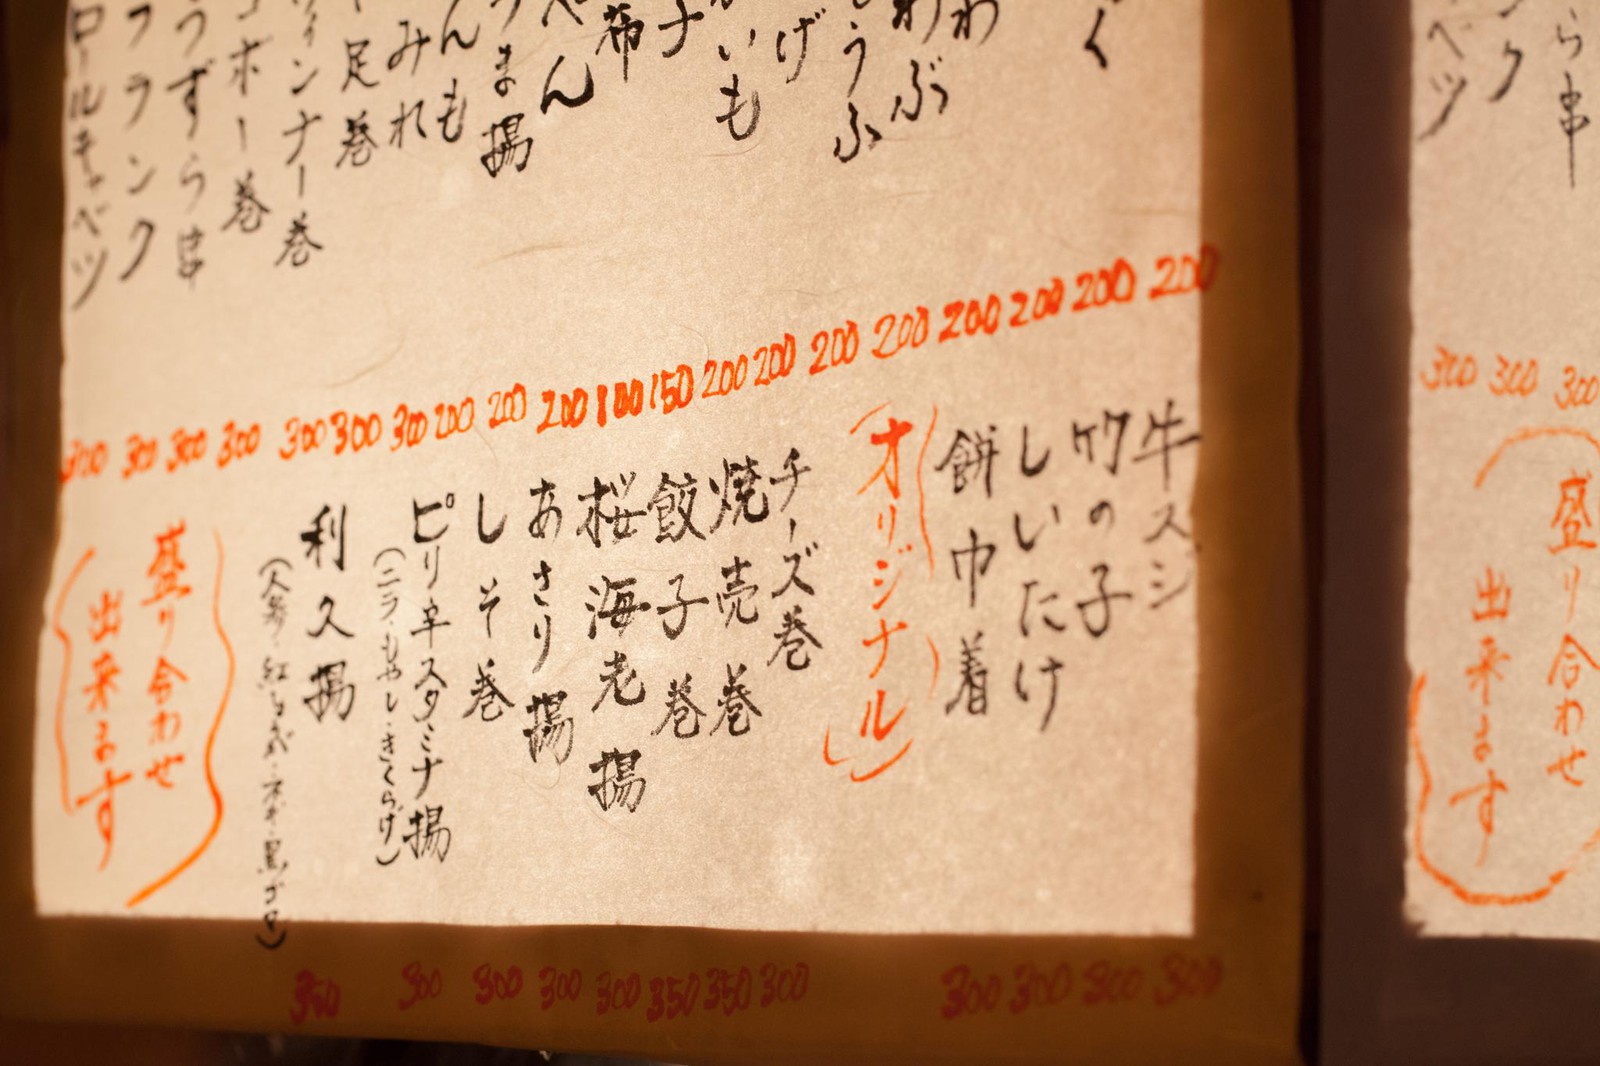 ら串
ンク
ベツ
300
300
300
盛り合わせ
出来ます
く
わ
わぶ
うふ
げ
いも
ナ
布
ぺん
ま揚
んも
みれ
足巻
ィンナー巻
ボー巻
うずら串
フランク
ロールキャベツ
200
200
200
200
200
200
200
200
150
100
200
200
200
300
300
300
300
300
300
300
牛スジ
竹の子
しいたけ
餅巾着
(オリジナル)
チーズ巻
焼売巻
餃子巻
桜海老揚
あさり揚
しそ巻
ピリ辛スタミナ揚
(ニラ・もやし・きくらげ)
利久揚
(人参・紅しょうが・ネギ・黒ゴマ)
盛り合わせ
出来ます
300
300
300
300
300
350
350
300
300
300
300
350